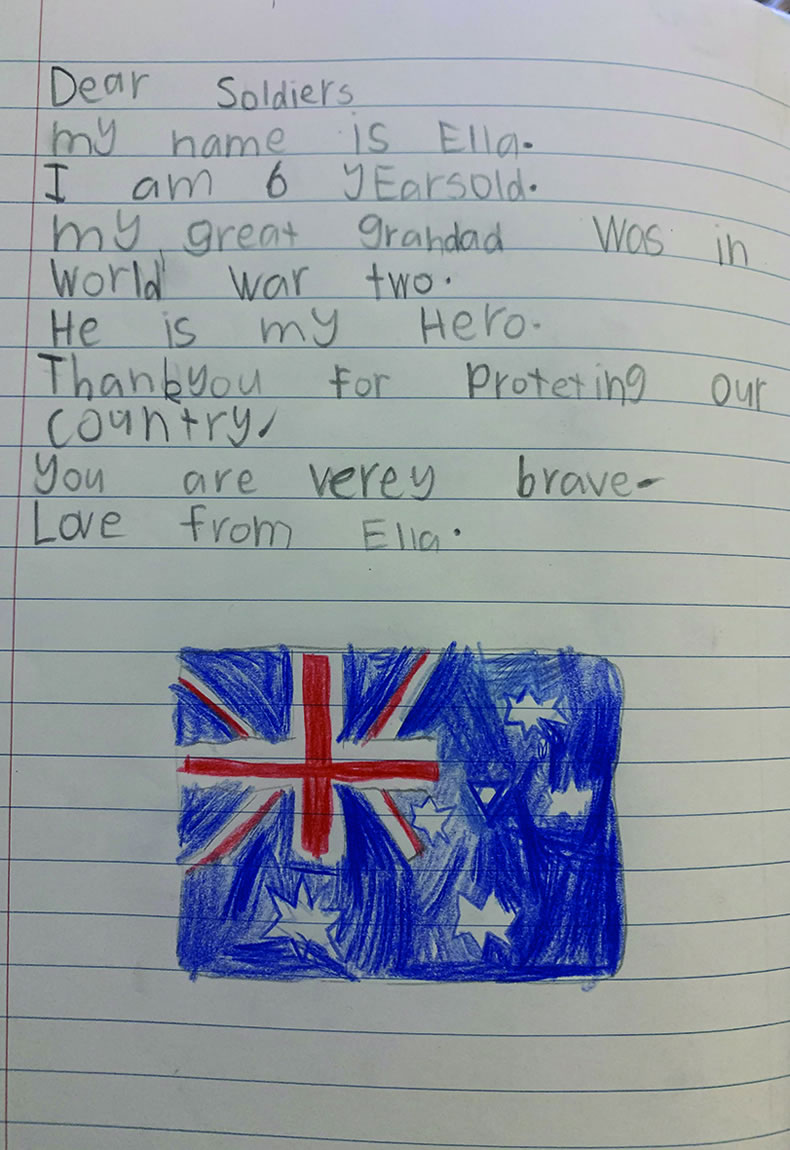 Dear Soldiers
my name is Ella.
I am 6 yEarsold.
my great grandad was in
World war two.
He is my Hero.
Thankyou for Proteting our
country,
you are verey brave-
Love from Ella.